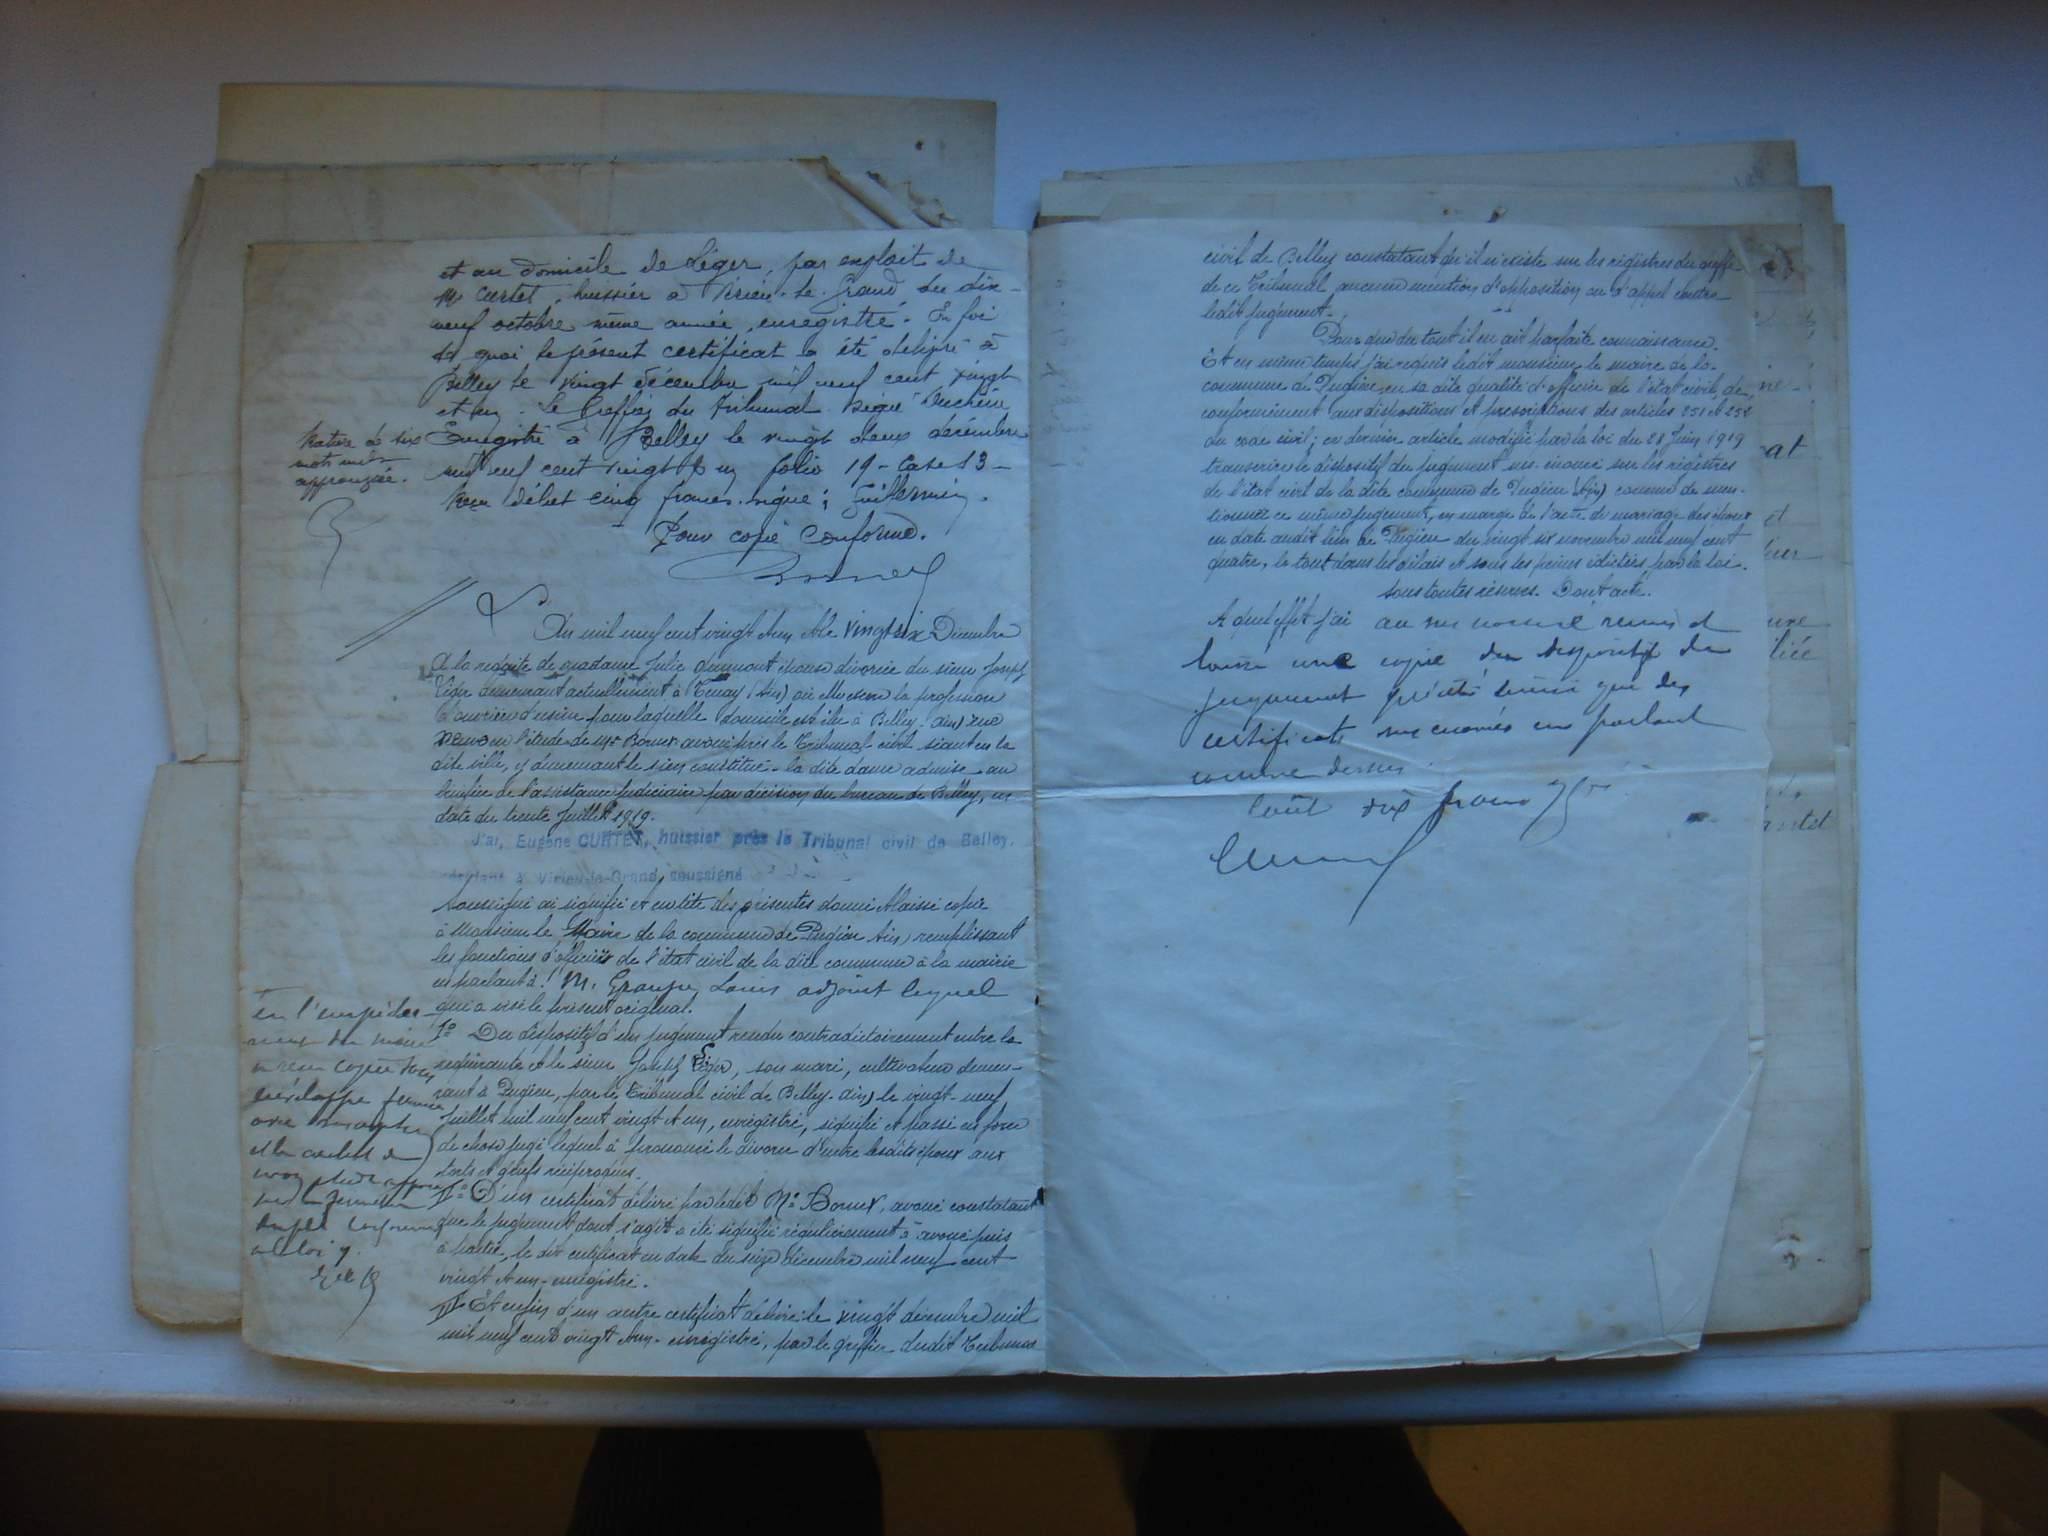 et au domicile de Léger, par exploit de
Me Curtet, huissier à Virieu-le-Grand du dix-
neuf octobre même année, enregistré. En foi
de quoi le présent certificat a été délivré à
Belley le vingt décembre mil neuf cent vingt
et un. Le Greffier du Tribunal signé
Enregistré à Belley le vingt deux décembre
mil neuf cent vingt un folio 19 - Case 13 -
débet cinq francs. signé:
Pour copie conforme.
Rature de six
mots nuls
approuvée.
L'An mil neuf cent vingt et un et le vingt six Décembre
A la requête de madame Julie Dumont épouse divorcée du sieur Joseph
Léger demeurant actuellement à Tenay (Ain) où elle exerce la profession
d'ouvrière d'usine pour laquelle domicile est élu à Belley (Ain) rue
en l'étude de Me avoué près le Tribunal civil séant en la
dite ville, y demeurant le sien constitué - la dite dame admise au
bénéfice de l'assistance judiciaire par décision du bureau de Belley, en
date du trente Juillet 1919.
J'ai, Eugène CURTET, huissier près le Tribunal civil de Belley,
résidant à Virieu-le-Grand, soussigné
Soussigné ai signifié et en tête des présentes donné et laissé copie
à Monsieur le Maire de la commune de Pugieu (Ain) remplissant
les fonctions d'officier de l'état civil de la dite commune à la mairie
en parlant à: M. Louis adjoint lequel
qui a visé le présent original.
en l'empêche-
ment du maire
1º Du dispositif d'un jugement rendu contradictoirement entre la
requérante et le sieur Joseph Léger, son mari, cultivateur demeu-
rant à Pugieu, par le Tribunal civil de Belley (Ain) le vingt-neuf
Juillet mil neuf cent vingt et un, enregistré, signifié et passé en force
de chose jugé lequel à prononcé le divorce d'entre lesdits époux aux
torts et griefs réciproques.
IIº D'un certificat délivré par ledit Me avoué constatant
que le jugement dont s'agit a été signifié régulièrement à avoué puis
à partie, le dit certificat en date du seize décembre mil neuf cent
vingt et un - enregistré.
Et enfin d'un autre certificat délivré le vingt décembre mil
mil neuf cent vingt et un - enregistré, par le greffier dudit Tribunal
civil de Belley constatant qu'il n'existe sur les registres du greffe
de ce Tribunal aucune mention d'opposition ou d'appel contre
ledit jugement.
Pour que du tout il en ait parfaite connaissance.
Et en même temps j'ai requis ledit monsieur le maire de la
commune de Pugieu, en sa dite qualité d'officier de l'état civil, de
conformément aux dispositions et prescriptions des articles 251 et 252
du code civil; ce dernier article modifié par la loi du 28 Juin 1919
transcrire le dispositif du jugement sus-énoncé sur les registres
de l'état civil de la dite commune de Pugieu (Ain) comme de men-
tionner ce même jugement, en marge de l'acte de mariage des époux
en date audit lieu de Pugieu du vingt six novembre mil neuf cent
quatre, le tout dans les délais et sous les peines édictées par la loi.
sous toutes réserves. Dont acte.
A quel effet j'ai au sus nommé remis et
laissé une copie du dispositif du
jugement précité ainsi que des
certificats sus énoncés en parlant
comme dessus.
Coût dix francs